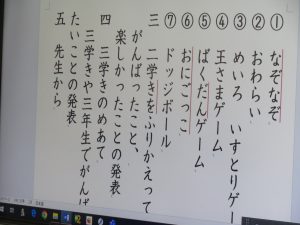 ① なぞなぞ
② おわらい
③ めいろ いすとりゲー
④ 王さまゲーム
⑤ ばくだんゲーム
⑥ おにごっこ
⑦ ドッジボール
三 二学きをふりかえって
がんばったこと、
楽しかったことの発表
四 三学きのめあて
三学きや三年生でがんば
たいことの発表
五 先生から